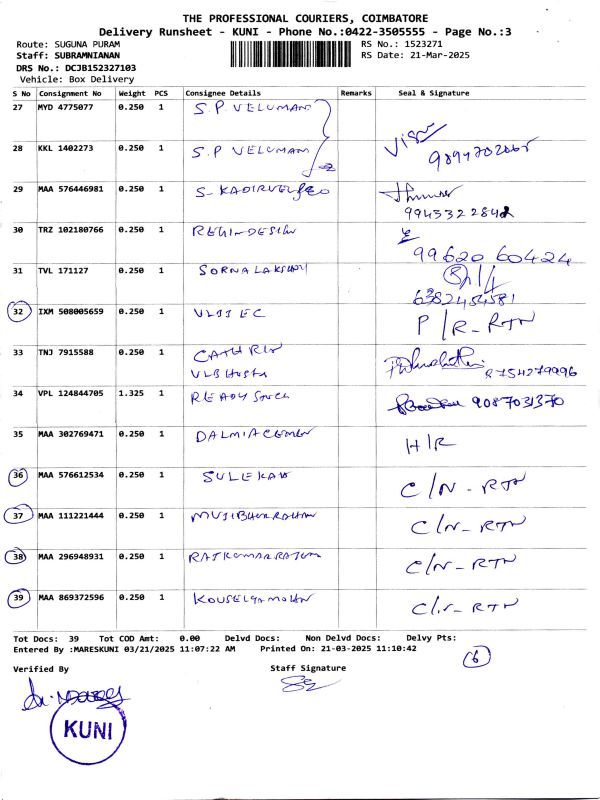 THE PROFESSIONAL COURIERS, COIMBATORE
Delivery Runsheet - KUNI - Phone No.:0422-3505555 - Page No.:3
Route: SUGUNA PURAM RS No.: 1523271
Staff: SUBRAMNIANAN RS Date: 21-Mar-2025
DRS No.: DCJB152327103
Vehicle: Box Delivery
S No Consignment No Weight PCS Consignee Details Remarks Seal & Signature
27 MYD 4775077 0.250 1 S.P. VELUMANI
28 KKL 1402273 0.250 1 S.P VELUMANI
29 MAA 576446981 0.250 1 S-
9945322842
30 TRZ 102180766 0.250 1 REGIN-DESIGN
99620 60424
31 TVL 171127 0.250 1 SORNALAKSHMI
6382454581
32 IXM 508005659 0.250 1 P/R-RTN
33 TNJ 7915588 0.250 1 CATHRIN
VLB 8754279996
34 VPL 124844705 1.325 1 READY 9087031370
35 MAA 302769471 0.250 1 DALMIA CEMEN H/R
36 MAA 576612534 0.250 1 C/N-RTN
37 MAA 111221444 0.250 1 MUJIBHURRAHAN C/N-RTN
38 MAA 296948931 0.250 1 C/N-RTN
39 MAA 869372596 0.250 1 KOUSELYAMOHAN C/N-RTN
Tot Docs: 39 Tot COD Amt: 0.00 Delvd Docs: Non Delvd Docs: Delvy Pts:
Entered By :MARESKUNI 03/21/2025 11:07:22 AM Printed On: 21-03-2025 11:10:42
6
Verified By Staff Signature
KUNI